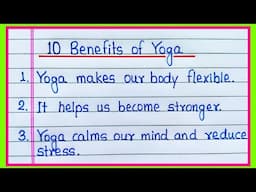 10 Benefits of Yoga
1. Yoga makes our body flexible.
2. It helps us become stronger.
3. Yoga calms our mind and reduce
stress.